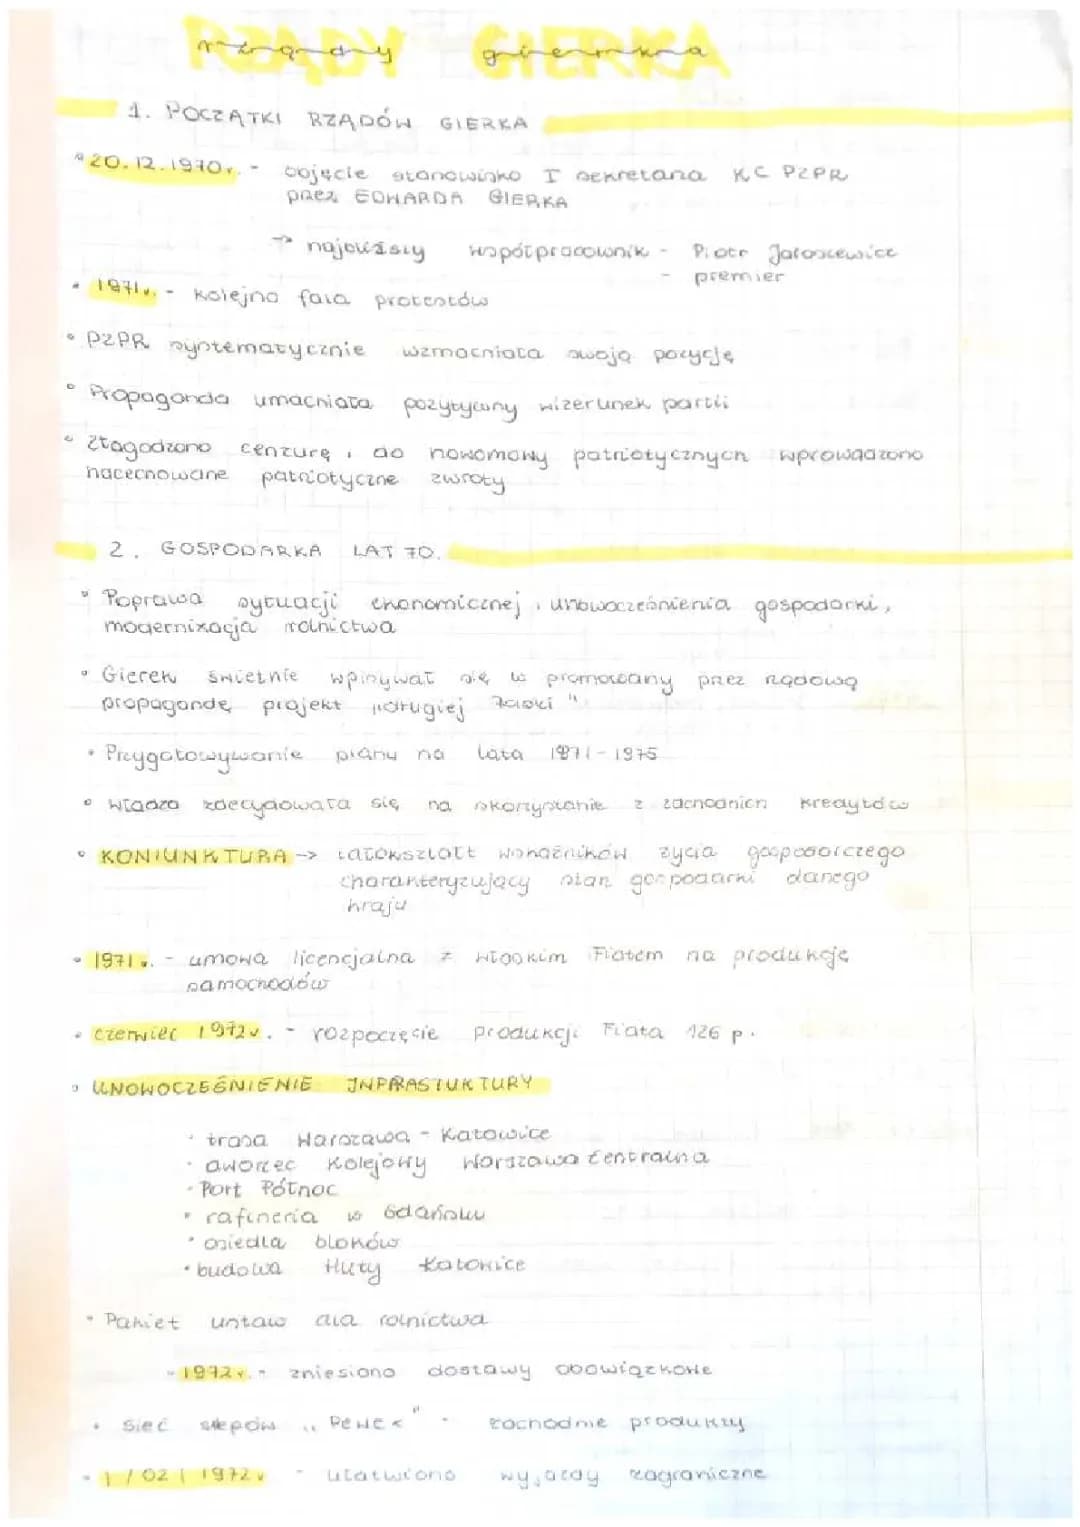 RZĄDY GIERKA
rządy gierka
1. POCZĄTKI RZĄDÓW GIERKA
20.12.1970r. - objęcie stanowisko I sekretarza KC PZPR
przez EDWARDA GIERKA
→ najbliższy współpracownik - Piotr Jaroszewicz
- premier
1971r. - kolejna fala protestów
PZPR systematycznie wzmacniała swoją pozycję
Propaganda umacniała pozytywny wizerunek partii
Złagodzono cenzurę, do nowomowy patriotycznych wprowadzono
nacechowane patriotyczne zwroty
2. GOSPODARKA LAT 70.
Poprawa sytuacji ekonomicznej, unowocześnienia gospodarki,
modernizacja rolnictwa
Gierek świetnie wpisywał się w promowany przez rządową
propagandę projekt "drugiej Polski"
Przygotowywanie planu na lata 1971-1975
Władza zdecydowała się na skorzystanie z zachodnich kredytów
KONIUNKTURA -> całokształt wskaźników życia gospodarczego
charakteryzujący stan gospodarki danego
kraju
1971r. - umowa licencjalna z włoskim Fiatem na produkcję
samochodów
czerwiec 1972r. - rozpoczęcie produkcji Fiata 126 p.
UNOWOCZEŚNIENIE INFRASTUKTURY
trasa Warszawa - Katowice
dworzec kolejowy Warszawa Centralna
Port Północ
rafineria w Gdańsku
osiedla bloków
budowa Huty Katowice
Pakiet ustaw dla rolnictwa
- 1972r. - zniesiono dostawy obowiązkowe
Sieć sklepów "Pewex" - zachodnie produkty
1/02/1972r - ułatwiono wyjazdy zagraniczne